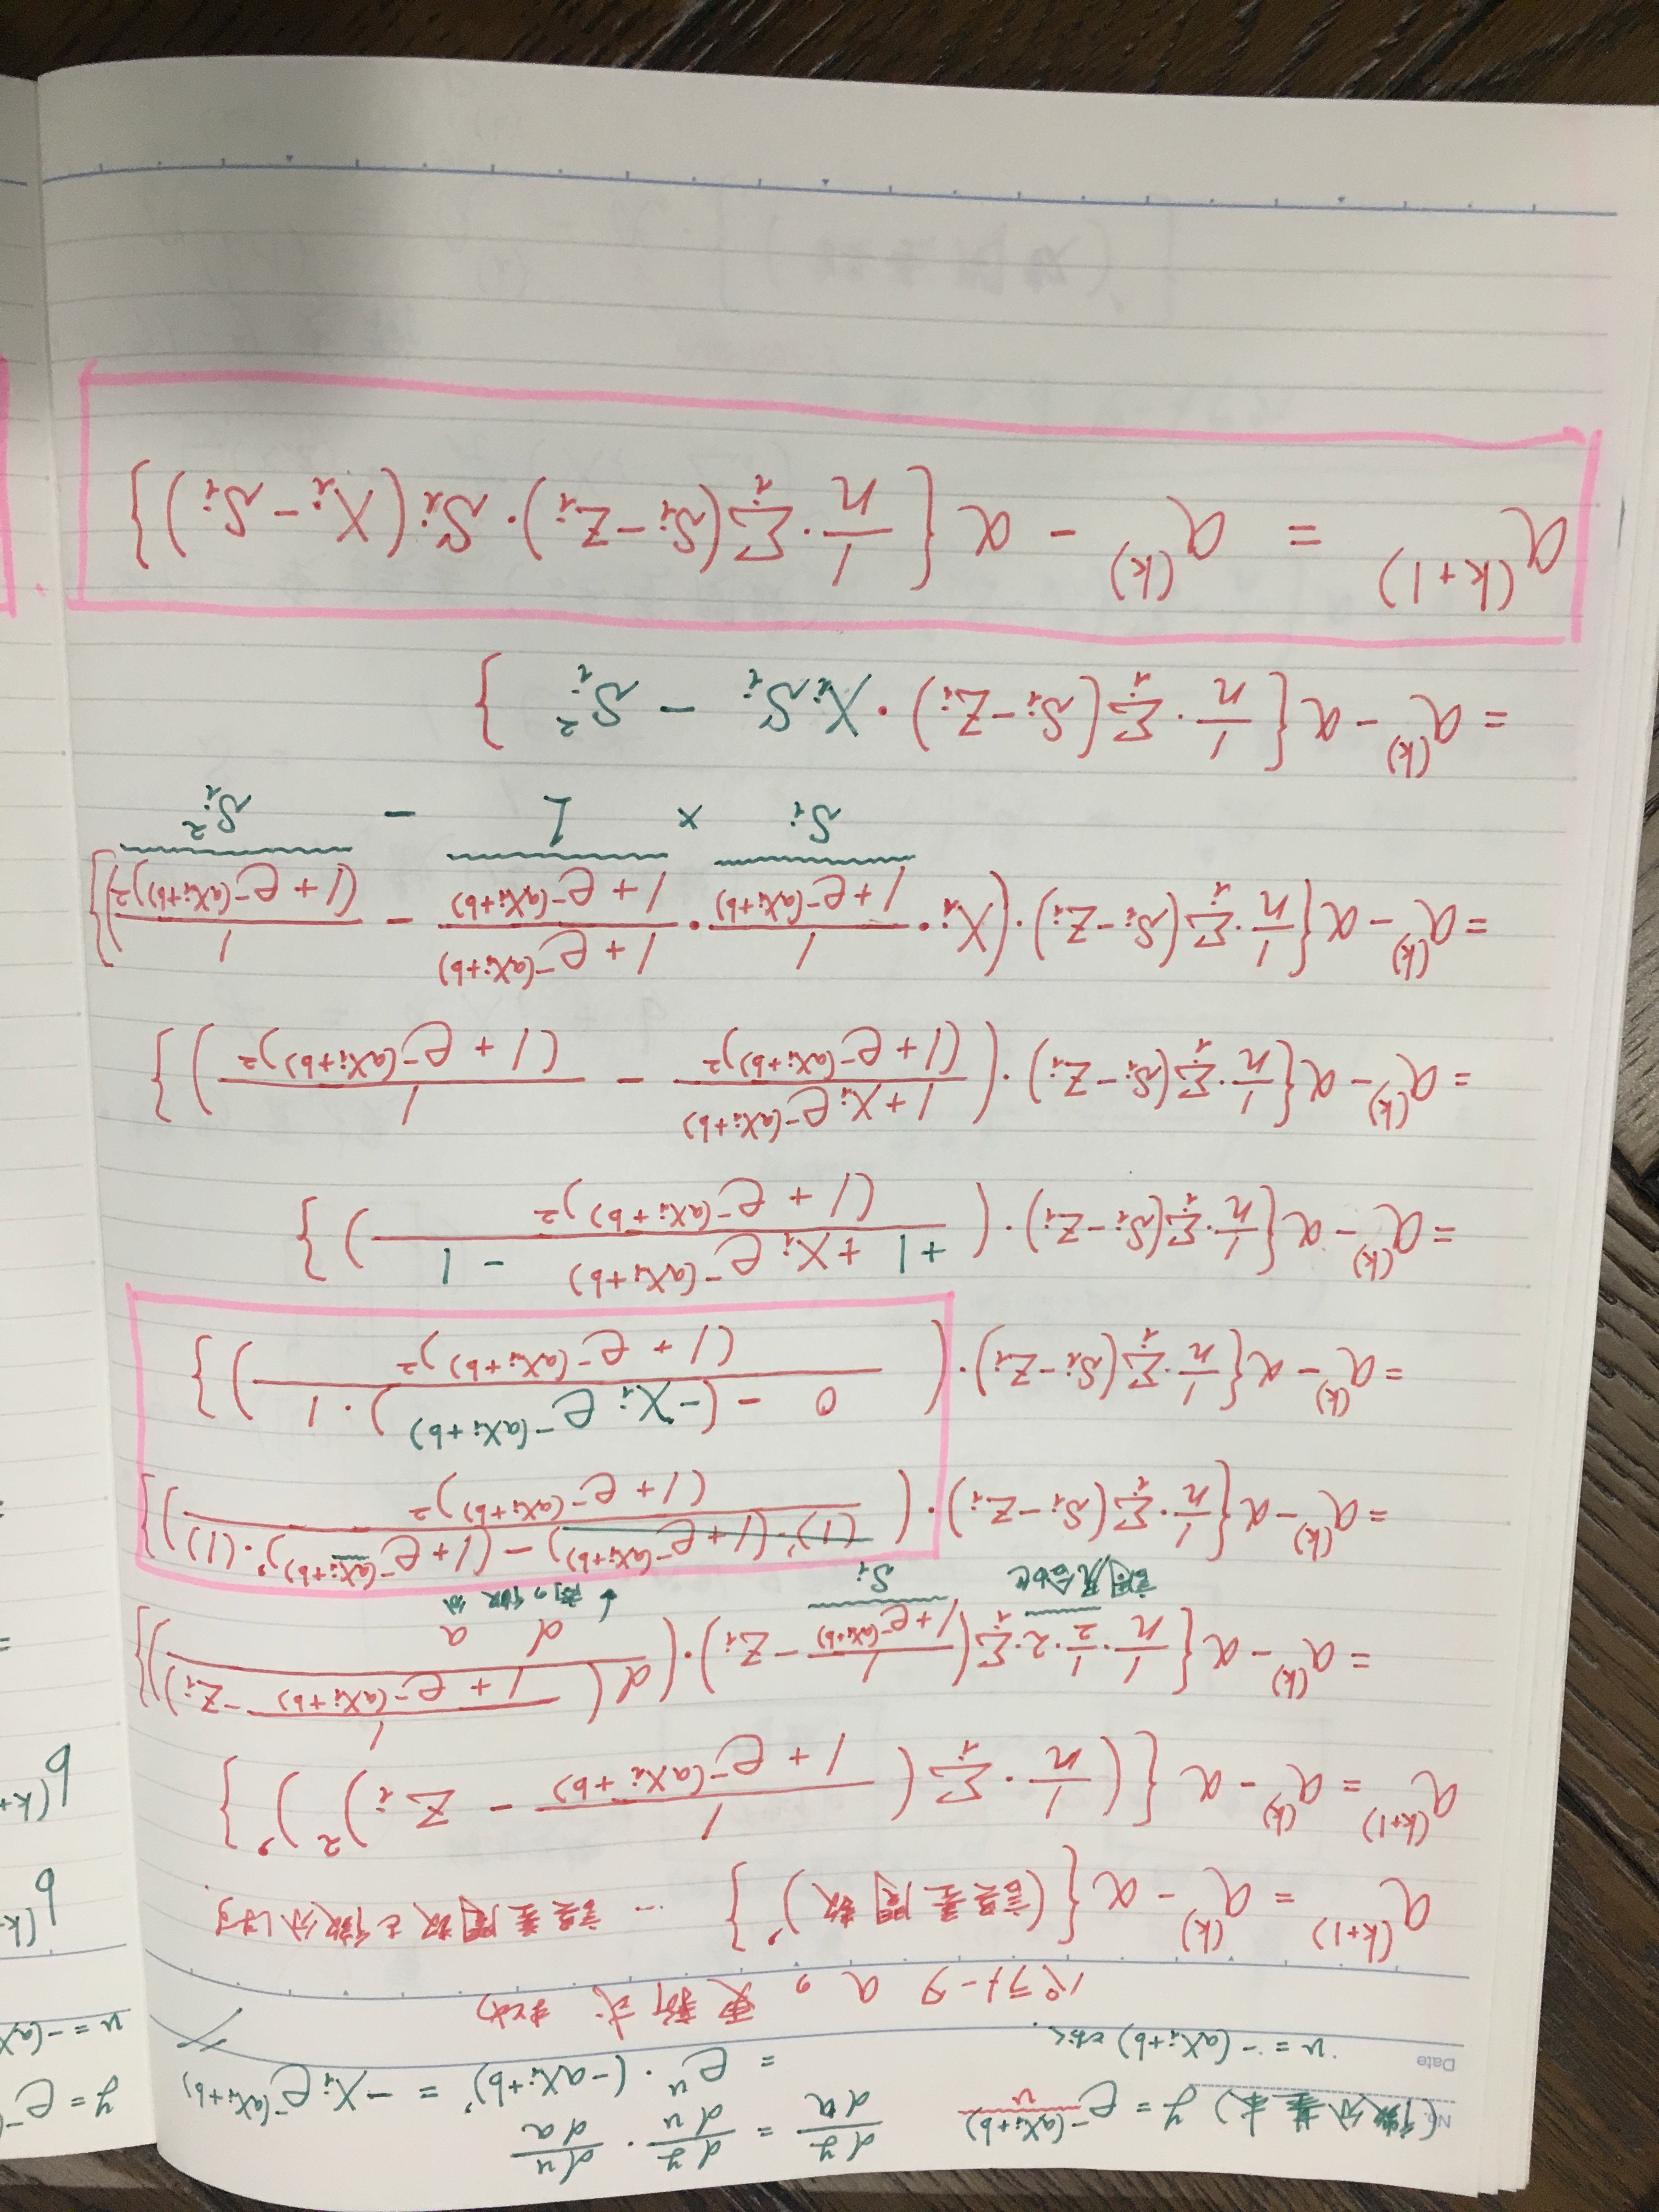 No.
Date
(微分基本) y = e^{-(aXi+b)} dy/da = dy/du · du/da
u
u = -(aXi+b) とおく
= e^u · (-aXi+b)' = -Xi e^{-(aXi+b)}
パラメータ a の更新式
a^{(k+1)} = a^{(k)} - α{(誤差関数)'} … 誤差関数を微分します
a^{(k+1)} = a^{(k)} - α{(1/n · Σ_i (1/(1+e^{-(aXi+b)}) - Zi)^2)'}
= a^{(k)} - α{1/n · 1/2 · 2 · Σ_i (1/(1+e^{-(aXi+b)}) - Zi) · (d(1/(1+e^{-(aXi+b)}) - Zi)/d a)}
Si ↓ 商の微分
= a^{(k)} - α{1/n · Σ_i (Si - Zi) · (((1)' · (1+e^{-(aXi+b)}) - (1+e^{-(aXi+b)})' · (1))/(1+e^{-(aXi+b)})^2)}
= a^{(k)} - α{1/n · Σ_i (Si - Zi) · ((0 - (-Xi e^{-(aXi+b)}) · 1)/(1+e^{-(aXi+b)})^2)}
= a^{(k)} - α{1/n · Σ_i (Si - Zi) · ((+1 + Xi e^{-(aXi+b)} - 1)/(1+e^{-(aXi+b)})^2)}
= a^{(k)} - α{1/n · Σ_i (Si - Zi) · ((1+Xi e^{-(aXi+b)})/(1+e^{-(aXi+b)})^2 - 1/(1+e^{-(aXi+b)})^2)}
= a^{(k)} - α{1/n · Σ_i (Si - Zi) · (Xi · 1/(1+e^{-(aXi+b)}) · (1+e^{-(aXi+b)})/(1+e^{-(aXi+b)}) - 1/(1+e^{-(aXi+b)})^2)}
Si × 1 - Si^2
= a^{(k)} - α{1/n · Σ_i (Si - Zi) · XiSi - Si^2}
a^{(k+1)} = a^{(k)} - α{1/n · Σ_i (Si - Zi) · Si(Xi - Si)}
y = e^{-(
u = -(aX
b^{(k
b^{(k+
=